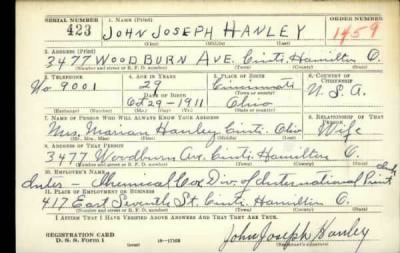 SERIAL NUMBER 1. NAME (Print) ORDER NUMBER
423 JOHN JOSEPH HANLEY 1459
(First) (Middle) (Last)
2. ADDRESS (Print)
3477 WOODBURN AVE. Cinti. Hamilton O.
(Number and street or R. F. D. number) (Town) (County) (State)
3. TELEPHONE 4. AGE IN YEARS 5. PLACE OF BIRTH 6. COUNTRY OF CITIZENSHIP
Wo 9001 29 Cincinnati
DATE OF BIRTH (Town or county)
Oct 29-1911 Ohio U.S.A.
(Exchange) (Number) (Mo.) (Day) (Yr.) (State or country)
7. NAME OF PERSON WHO WILL ALWAYS KNOW YOUR ADDRESS 8. RELATIONSHIP OF THAT PERSON
Mrs. Marian Hanley Cinti. Ohio Wife
(Mr., Mrs., Miss) (First) (Middle) (Last)
9. ADDRESS OF THAT PERSON
3477 Woodburn Av. Cinti. Hamilton O.
(Number and street or R. F. D. number) (Town) (County) (State)
10. EMPLOYER'S NAME
Inter- Chemical Co Div. of International Print Ink
11. PLACE OF EMPLOYMENT OR BUSINESS
417 East Seventh St. Cinti. Hamilton O.
(Number and street or R. F. D. number) (Town) (County) (State)
I AFFIRM THAT I HAVE VERIFIED ABOVE ANSWERS AND THAT THEY ARE TRUE.
REGISTRATION CARD
D. S. S. Form 1 (over) 16-17105 John Joseph Hanley
(Registrant's signature)